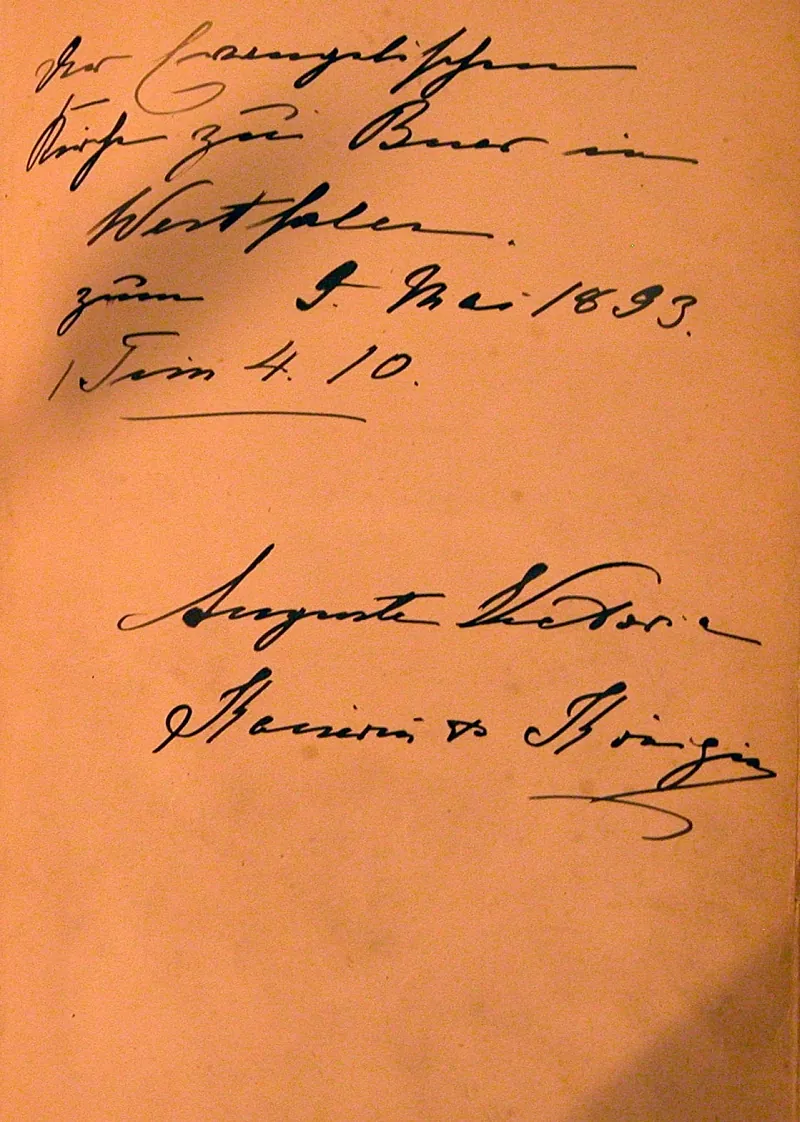 Der Evangelischen
Kirche zu Buer in
Westfalen.
zum 9. Mai 1893.
1 Tim 4. 10.
Auguste Victoria
Kaiserin & Königin